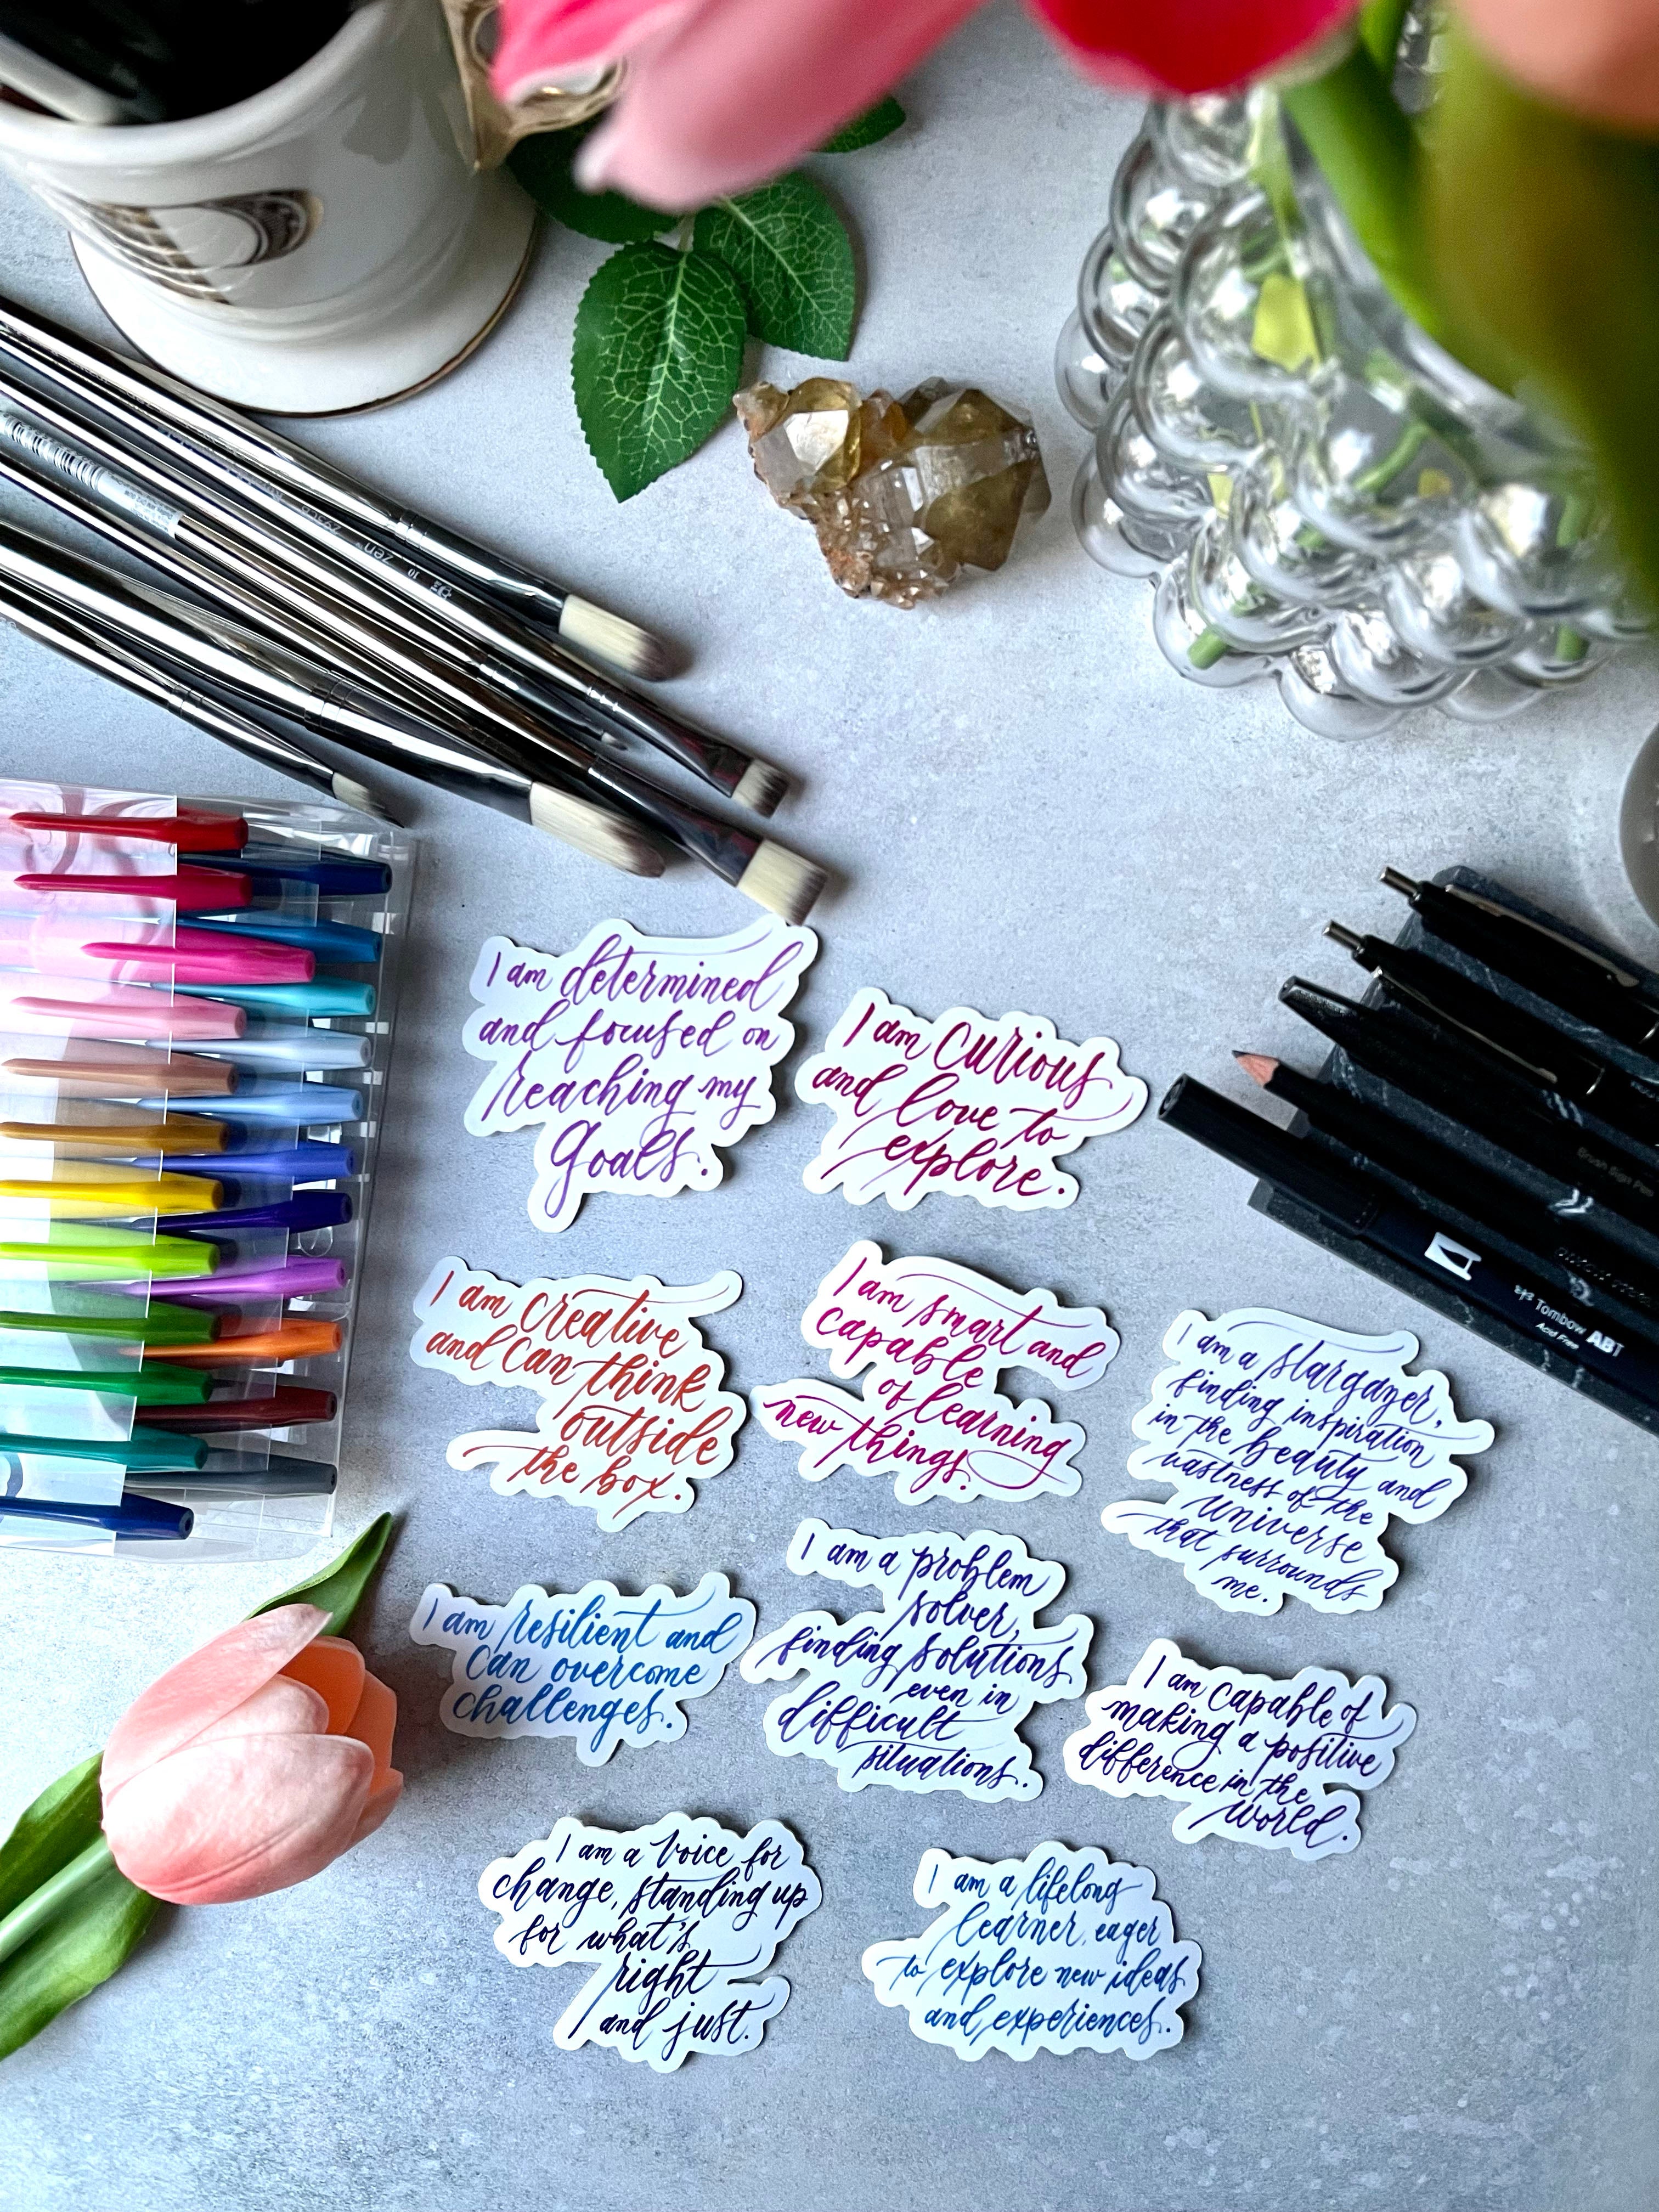 zen
10
I am determined
and focused on
reaching my
goals.
I am curious
and love to
explore.
I am creative
and can think
outside
the box.
I am smart and
capable
of learning
new things.
I am a stargazer,
finding inspiration
in the beauty and
vastness of the
universe
that surrounds
me.
I am resilient and
can overcome
challenges.
I am a problem
solver,
finding solutions
even in
difficult
situations.
I am capable of
making a positive
difference in the
world.
I am a voice for
change, standing up
for what's
right
and just.
I am a lifelong
learner, eager
to explore new ideas
and experiences.
Brush Sign Pen
Tombow ABT
Acid Free